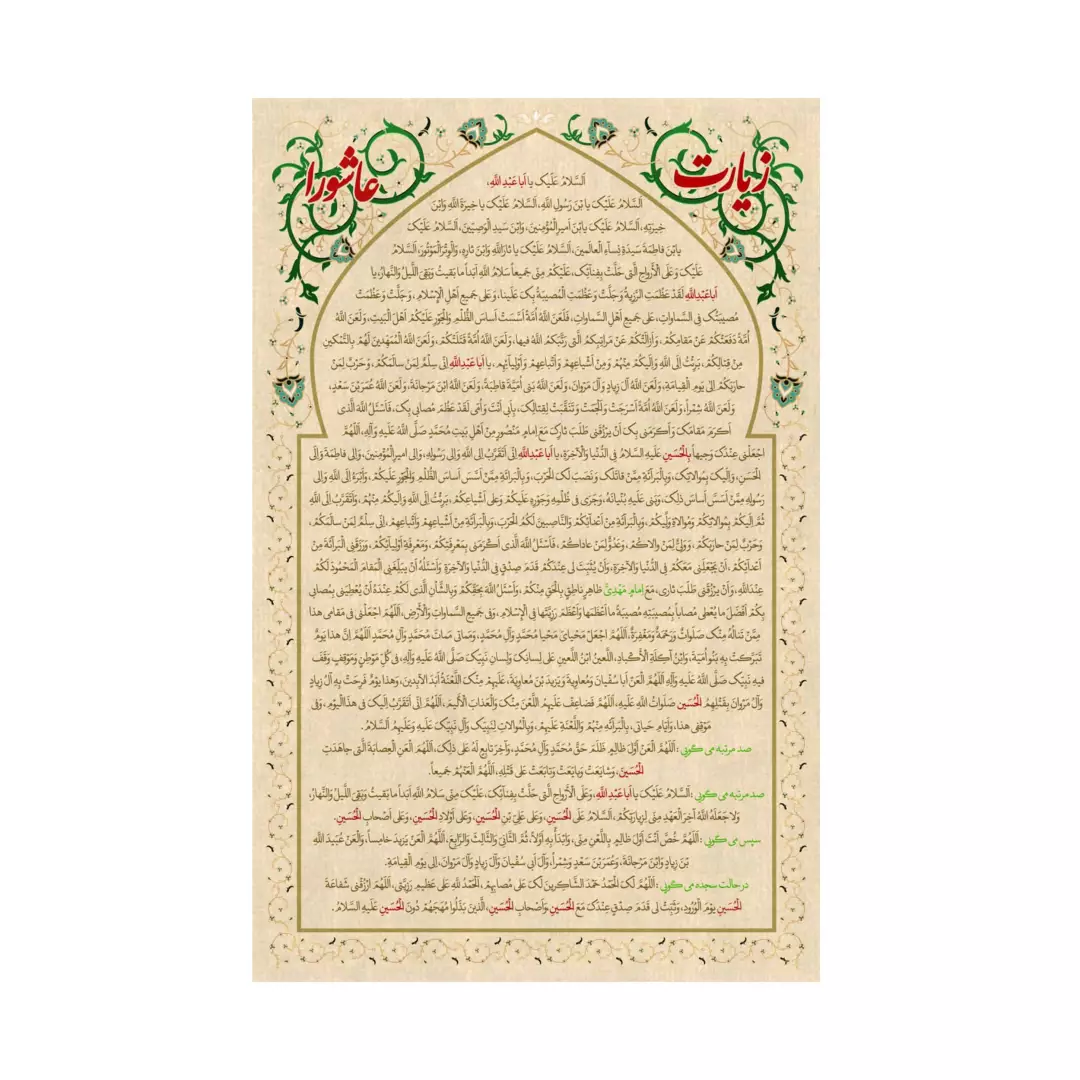 زیارت عاشورا
اَلسَّلامُ عَلَیْکَ یا اَبا عَبْدِ اللَّهِ،
اَلسَّلامُ عَلَیْکَ یَا بْنَ رَسُولِ اللَّهِ، اَلسَّلامُ عَلَیْکَ یا خِیَرَةَ اللَّهِ وَابْنَ
خِیَرَتِهِ، اَلسَّلامُ عَلَیْکَ یَابْنَ اَمیرِالْمُؤْمِنینَ، وَابْنَ سَیِّدِ الْوَصِیّینَ، اَلسَّلامُ عَلَیْکَ
یَابْنَ فاطِمَةَ سَیِّدَةِ نِساءِ الْعالَمینَ، اَلسَّلامُ عَلَیْکَ یا ثارَاللَّهِ وَابْنَ ثارِهِ، وَالْوِتْرَ الْمَوْتُورَ، اَلسَّلامُ
عَلَیْکَ وَعَلَى الْأَرْواحِ الَّتى حَلَّتْ بِفِنآئِکَ، عَلَیْکُمْ مِنّى جَمیعاً سَلامُ اللَّهِ اَبَداً ما بَقیتُ وَبَقِىَ اللَّیْلُ وَالنَّهارُ، یا
اَباعَبْدِاللَّهِ لَقَدْ عَظُمَتِ الرَّزِیَّةُ وَجَلَّتْ وَعَظُمَتِ الْمُصیبَةُ بِکَ عَلَینا، وَعَلى جَمیعِ اَهْلِ الْإِسْلامِ، وَجَلَّتْ وَعَظُمَتْ
مُصیبَتُکَ فِى السَّماواتِ، عَلى جَمیعِ اَهْلِ السَّماواتِ، فَلَعَنَ اللَّهُ اُمَّةً اَسَّسَتْ اَساسَ الظُّلْمِ وَالْجَوْرِ عَلَیْکُمْ اَهْلَ الْبَیْتِ، وَلَعَنَ اللَّهُ
اُمَّةً دَفَعَتْکُمْ عَنْ مَقامِکُمْ، وَاَزالَتْکُمْ عَنْ مَراتِبِکُمُ الَّتى رَتَّبَکُمُ اللَّهُ فیها، وَلَعَنَ اللَّهُ اُمَّةً قَتَلَتْکُمْ، وَلَعَنَ اللَّهُ الْمُمَهِّدینَ لَهُمْ بِالتَّمْکینِ
مِنْ قِتالِکُمْ، بَرِئْتُ اِلَى اللَّهِ وَاِلَیْکُمْ مِنْهُمْ وَمِنْ اَشْیاعِهِمْ وَاَتْباعِهِمْ وَاَوْلِیآئِهِمْ، یا اَباعَبْدِاللَّهِ اِنّى سِلْمٌ لِمَنْ سالَمَکُمْ، وَحَرْبٌ لِمَنْ
حارَبَکُمْ اِلى یَوْمِ الْقِیامَةِ، وَلَعَنَ اللَّهُ آلَ زِیادٍ وَآلَ مَرْوانَ، وَلَعَنَ اللَّهُ بَنى اُمَیَّةَ قاطِبَةً، وَلَعَنَ اللَّهُ ابْنَ مَرْجانَةَ، وَلَعَنَ اللَّهُ عُمَرَ بْنَ سَعْدٍ،
وَلَعَنَ اللَّهُ شِمْراً، وَلَعَنَ اللَّهُ اُمَّةً اَسْرَجَتْ وَاَلْجَمَتْ وَتَنَقَّبَتْ لِقِتالِکَ، بِاَبى اَنْتَ وَاُمّى لَقَدْ عَظُمَ مُصابى بِکَ، فَاَسْئَلُ اللَّهَ الَّذى
اَکْرَمَ مَقامَکَ وَاَکْرَمَنى بِکَ اَنْ یَرْزُقَنى طَلَبَ ثارِکَ مَعَ اِمامٍ مَنْصُورٍ مِنْ اَهْلِ بَیْتِ مُحَمَّدٍ صَلَّى اللَّهُ عَلَیْهِ وَآلِهِ، اَللّهُمَّ
اجْعَلْنى عِنْدَکَ وَجیهاً بِالْحُسَیْنِ عَلَیْهِ السَّلامُ فِى الدُّنْیا وَالْآخِرَةِ، یا اَباعَبْدِاللَّهِ اِنّى اَتَقَرَّبُ اِلَى اللَّهِ وَاِلى رَسُولِهِ، وَاِلى امیرِالْمُؤْمِنینَ، وَاِلى فاطِمَةَ وَاِلَى
الْحَسَنِ، وَاِلَیْکَ بِمُوالاتِکَ، وَبِالْبَرائَةِ مِمَّنْ قاتَلَکَ وَنَصَبَ لَکَ الْحَرْبَ، وَبِالْبَرائَةِ مِمَّنْ اَسَّسَ اَساسَ الظُّلْمِ وَالْجَوْرِ عَلَیْکُمْ، وَاَبْرَءُ اِلَى اللَّهِ وَاِلى
رَسُولِهِ مِمَّنْ اَسَّسَ اَساسَ ذلِکَ، وَبَنى عَلَیْهِ بُنْیانَهُ، وَجَرى فى ظُلْمِهِ وَجَوْرِهِ عَلَیْکُمْ وَعَلى اَشْیاعِکُمْ، بَرِئْتُ اِلَى اللَّهِ وَاِلَیْکُمْ مِنْهُمْ، وَاَتَقَرَّبُ اِلَى اللَّهِ
ثُمَّ اِلَیْکُمْ بِمُوالاتِکُمْ وَمُوالاةِ وَلِیِّکُمْ، وَبِالْبَرائَةِ مِنْ اَعْدآئِکُمْ وَالنَّاصِبینَ لَکُمُ الْحَرْبَ، وَبِالْبَرائَةِ مِنْ اَشْیاعِهِمْ وَاَتْباعِهِمْ، اِنّى سِلْمٌ لِمَنْ سالَمَکُمْ،
وَحَرْبٌ لِمَنْ حارَبَکُمْ، وَوَلِىٌّ لِمَنْ والاکُمْ، وَعَدُوٌّ لِمَنْ عاداکُمْ، فَاَسْئَلُ اللَّهَ الَّذى اَکْرَمَنى بِمَعْرِفَتِکُمْ، وَمَعْرِفَةِ اَوْلِیآئِکُمْ، وَرَزَقَنِى الْبَرائَةَ مِنْ
اَعْدآئِکُمْ، اَنْ یَجْعَلَنى مَعَکُمْ فِى الدُّنْیا وَالْآخِرَةِ، وَاَنْ یُثَبِّتَ لى عِنْدَکُمْ قَدَمَ صِدْقٍ فِى الدُّنْیا وَالْآخِرَةِ وَاَسْئَلُهُ اَنْ یُبَلِّغَنِى الْمَقامَ الْمَحْمُودَ لَکُمْ
عِنْدَاللَّهِ، وَاَنْ یَرْزُقَنى طَلَبَ ثارى، مَعَ اِمامٍ مَهْدِىٍّ ظاهِرٍ ناطِقٍ بِالْحَقِّ مِنْکُمْ، وَاَسْئَلُ اللَّهَ بِحَقِّکُمْ وَبِالشَّأْنِ الَّذى لَکُمْ عِنْدَهُ اَنْ یُعْطِیَنى بِمُصابى
بِکُمْ اَفْضَلَ ما یُعْطى مُصاباً بِمُصیبَتِهِ مُصیبَةً ما اَعْظَمَها وَاَعْظَمَ رَزِیَّتَها فِى الْإِسْلامِ، وَفى جَمیعِ السَّماواتِ وَالْأَرْضِ، اَللّهُمَّ اجْعَلْنى فى مَقامى هذا
مِمَّنْ تَنالُهُ مِنْکَ صَلَواتٌ وَرَحْمَةٌ وَمَغْفِرَةٌ، اَللّهُمَّ اجْعَلْ مَحْیاىَ مَحْیا مُحَمَّدٍ وَآلِ مُحَمَّدٍ، وَمَماتى مَماتَ مُحَمَّدٍ وَآلِ مُحَمَّدٍ اَللّهُمَّ اِنَّ هذا یَوْمٌ
تَبَرَّکَتْ بِهِ بَنُو اُمَیَّةَ، وَابْنُ آکِلَةِ الْأَکْبادِ، اللَّعینُ ابْنُ اللَّعینِ عَلى لِسانِکَ وَلِسانِ نَبِیِّکَ صَلَّى اللَّهُ عَلَیْهِ وَآلِهِ، فى کُلِّ مَوْطِنٍ وَمَوْقِفٍ وَقَفَ
فیهِ نَبِیُّکَ صَلَّى اللَّهُ عَلَیْهِ وَآلِهِ اَللّهُمَّ الْعَنْ اَبا سُفْیانَ وَمُعاوِیَةَ وَیَزیدَ بْنَ مُعاوِیَةَ، عَلَیْهِمْ مِنْکَ اللَّعْنَةُ اَبَدَ الْآبِدینَ، وَهذا یَوْمٌ فَرِحَتْ بِهِ آلُ زِیادٍ
وَآلُ مَرْوانَ بِقَتْلِهِمُ الْحُسَیْنَ صَلَواتُ اللَّهِ عَلَیْهِ، اَللّهُمَّ فَضاعِفْ عَلَیْهِمُ اللَّعْنَ مِنْکَ وَالْعَذابَ الْاَلیمَ، اَللّهُمَّ اِنّى اَتَقَرَّبُ اِلَیْکَ فى هذَاالْیَوْمِ، وَفى
مَوْقِفى هذا، وَاَیَّامِ حَیاتى، بِالْبَرآئَهِ مِنْهُمْ وَاللَّعْنَةِ عَلَیْهِمْ، وَبِالْمُوالاتِ لِنَبِیِّکَ وَآلِ نَبِیِّکَ عَلَیْهِ وَعَلَیْهِمُ اَلسَّلامُ.
صد مرتبه مى گوئى: اَللّهُمَّ الْعَنْ اَوَّلَ ظالِمٍ ظَلَمَ حَقَّ مُحَمَّدٍ وَآلِ مُحَمَّدٍ، وَآخِرَ تابِعٍ لَهُ عَلى ذلِکَ، اَللّهُمَّ الْعَنِ الْعِصابَةَ الَّتى جاهَدَتِ
الْحُسَیْنَ، وَشایَعَتْ وَبایَعَتْ وَتابَعَتْ عَلى قَتْلِهِ، اَللّهُمَّ الْعَنْهُمْ جَمیعاً.
صد مرتبه مى گوئى: اَلسَّلامُ عَلَیْکَ یا اَباعَبْدِ اللَّهِ، وَعَلَى الْأَرْواحِ الَّتى حَلَّتْ بِفِنآئِکَ، عَلَیْکَ مِنّى سَلامُ اللَّهِ اَبَداً ما بَقیتُ وَبَقِىَ اللَّیْلُ وَالنَّهارُ،
وَلا جَعَلَهُ اللَّهُ آخِرَ الْعَهْدِ مِنّى لِزِیارَتِکُمْ، اَلسَّلامُ عَلَى الْحُسَیْنِ، وَعَلى عَلِىِّ بْنِ الْحُسَیْنِ، وَعَلى اَوْلادِ الْحُسَیْنِ، وَعَلى اَصْحابِ الْحُسَیْنِ.
سپس مى گوئى: اَللّهُمَّ خُصَّ اَنْتَ اَوَّلَ ظالِمٍ بِاللَّعْنِ مِنّى، وَابْدَأْ بِهِ اَوَّلاً، ثُمَّ الثَّانِىَ وَالثَّالِثَ وَالرَّابِعَ، اَللّهُمَّ الْعَنْ یَزیدَ خامِساً، وَالْعَنْ عُبَیْدَ اللَّهِ
بْنَ زِیادٍ وَابْنَ مَرْجانَةَ، وَعُمَرَ بْنَ سَعْدٍ وَشِمْراً، وَآلَ اَبى سُفْیانَ وَآلَ زِیادٍ وَآلَ مَرْوانَ، اِلى یَوْمِ الْقِیامَةِ.
در حالت سجده مى گوئى: اَللّهُمَّ لَکَ الْحَمْدُ حَمْدَ الشَّاکِرینَ لَکَ عَلى مُصابِهِمْ، اَلْحَمْدُ للَّهِ عَلى عَظیمِ رَزِیَّتى، اَللّهُمَّ ارْزُقْنى شَفاعَةَ
الْحُسَیْنِ یَوْمَ الْوُرُودِ، وَثَبِّتْ لى قَدَمَ صِدْقٍ عِنْدَکَ مَعَ الْحُسَیْنِ وَاَصْحابِ الْحُسَیْنِ، الَّذینَ بَذَلُوا مُهَجَهُمْ دُونَ الْحُسَیْنِ عَلَیْهِ السَّلامُ.